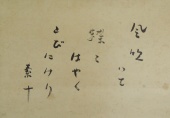 風吹いて
蝶々
はやく
とびにけり
素十